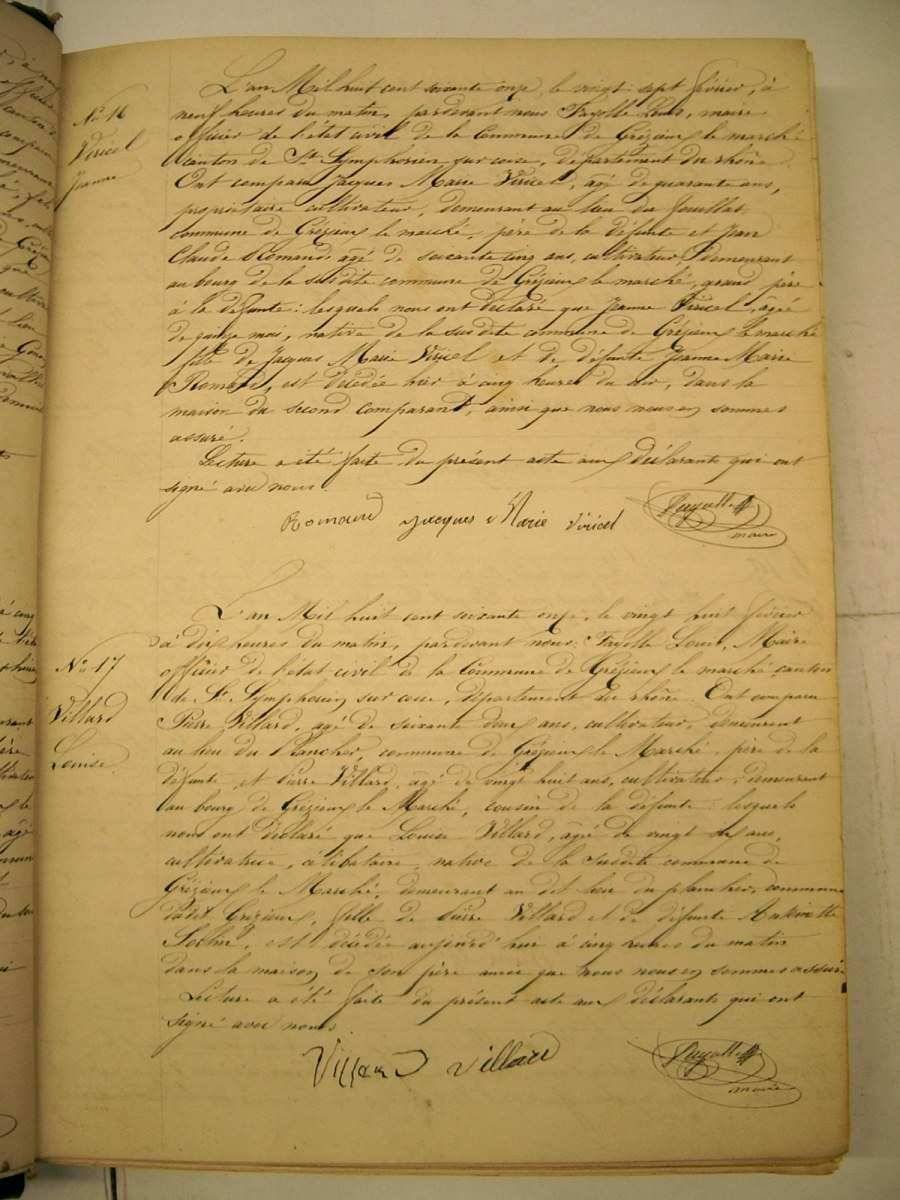 N° 16
Viricel
Jeanne
L'an Mil huit cent soixante onze, le vingt sept février, à
neuf heures du matin, pardevant nous Fayolle Louis, maire
officier de l'état civil de la Commune de Grézieux le marché
canton de St Symphorien sur coise, département du rhône
Ont comparu Jacques Marie Viricel, âgé de quarante ans,
propriétaire cultivateur, demeurant au lieu du
commune de Grézieux le marché, père de la défunte et Jean
Claude Romand âgé de soixante cinq ans, cultivateur demeurant
au bourg de la susdite commune de Grézieux le marché, grand père
à la défunte : lesquels nous ont déclaré que Jeanne Viricel, âgée
de quinze mois, native de la susdite commune de Grézieux le marché
fille de Jacques Marie Viricel et de défunte Jeanne Marie
Romand, est décédée hier à cinq heures du soir, dans la
maison du second comparant, ainsi que nous nous en sommes
assuré.
Lecture a été faite du présent acte aux déclarants qui ont
signé avec nous.
Romand Jacques Marie Viricel Fayolle
maire
N° 17
Villard
Louise
L'an Mil huit cent soixante onze, le vingt huit février
à dix heures du matin, pardevant nous Fayolle Louis, Maire
officier de l'état civil de la Commune de Grézieux le marché canton
de St Symphorien sur coise, département du rhône. Ont comparu
Pierre Villard, âgé de soixante deux ans, cultivateur, demeurant
au lieu du Plancher, commune de Grézieux le Marché, père de la
défunte, et Pierre Villard, âgé de vingt huit ans, cultivateur, demeurant
au bourg de Grézieux le Marché, cousin de la défunte : lesquels
nous ont déclaré que Louise Villard, âgée de vingt ans,
cultivatrice, célibataire, native de la susdite commune de
Grézieux le Marché, demeurant au dit lieu du plancher, commune
dudit Grézieux, fille de Pierre Villard et de défunte Antoinette
est décédée aujourd'hui à cinq heures du matin
dans la maison de son père ainsi que nous nous en sommes assuré
Lecture a été faite du présent acte aux déclarants qui ont
signé avec nous
Villard Villard Fayolle
maire